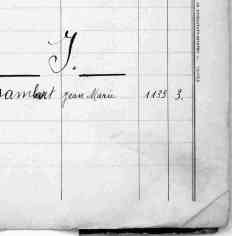 J.
Jambert Jean Marie 1133 3.